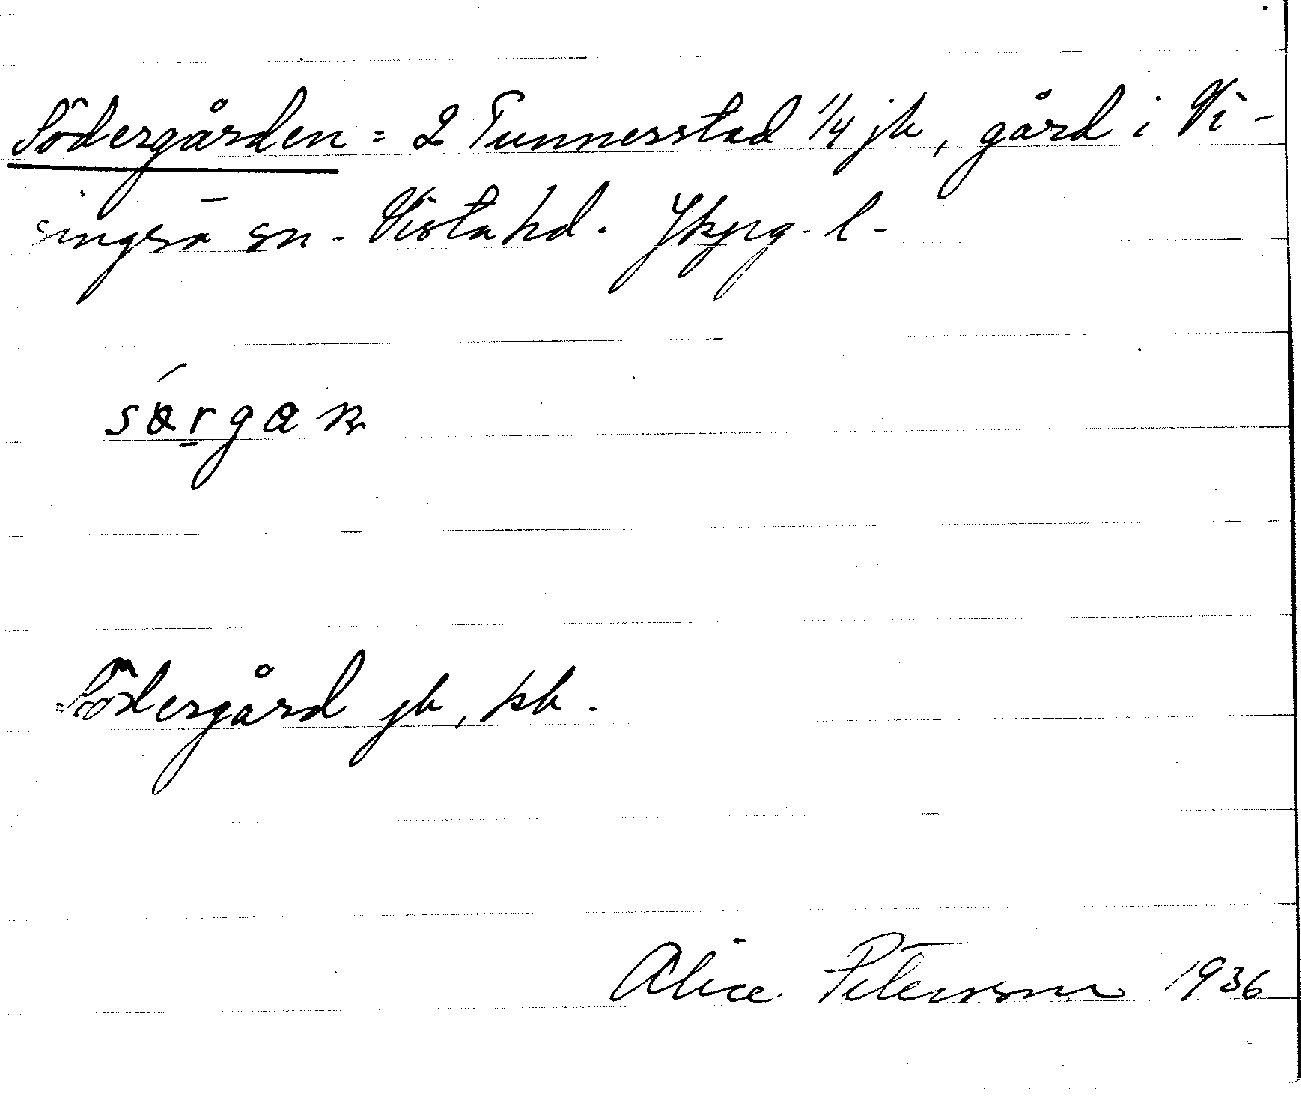 Södergården = 2 Tunnerstad 1/4 jb, gård i Vi-
singsö sn. Vista hd. Jkpg. l.
Södergård jb, kb.
Alice Peterson 1936